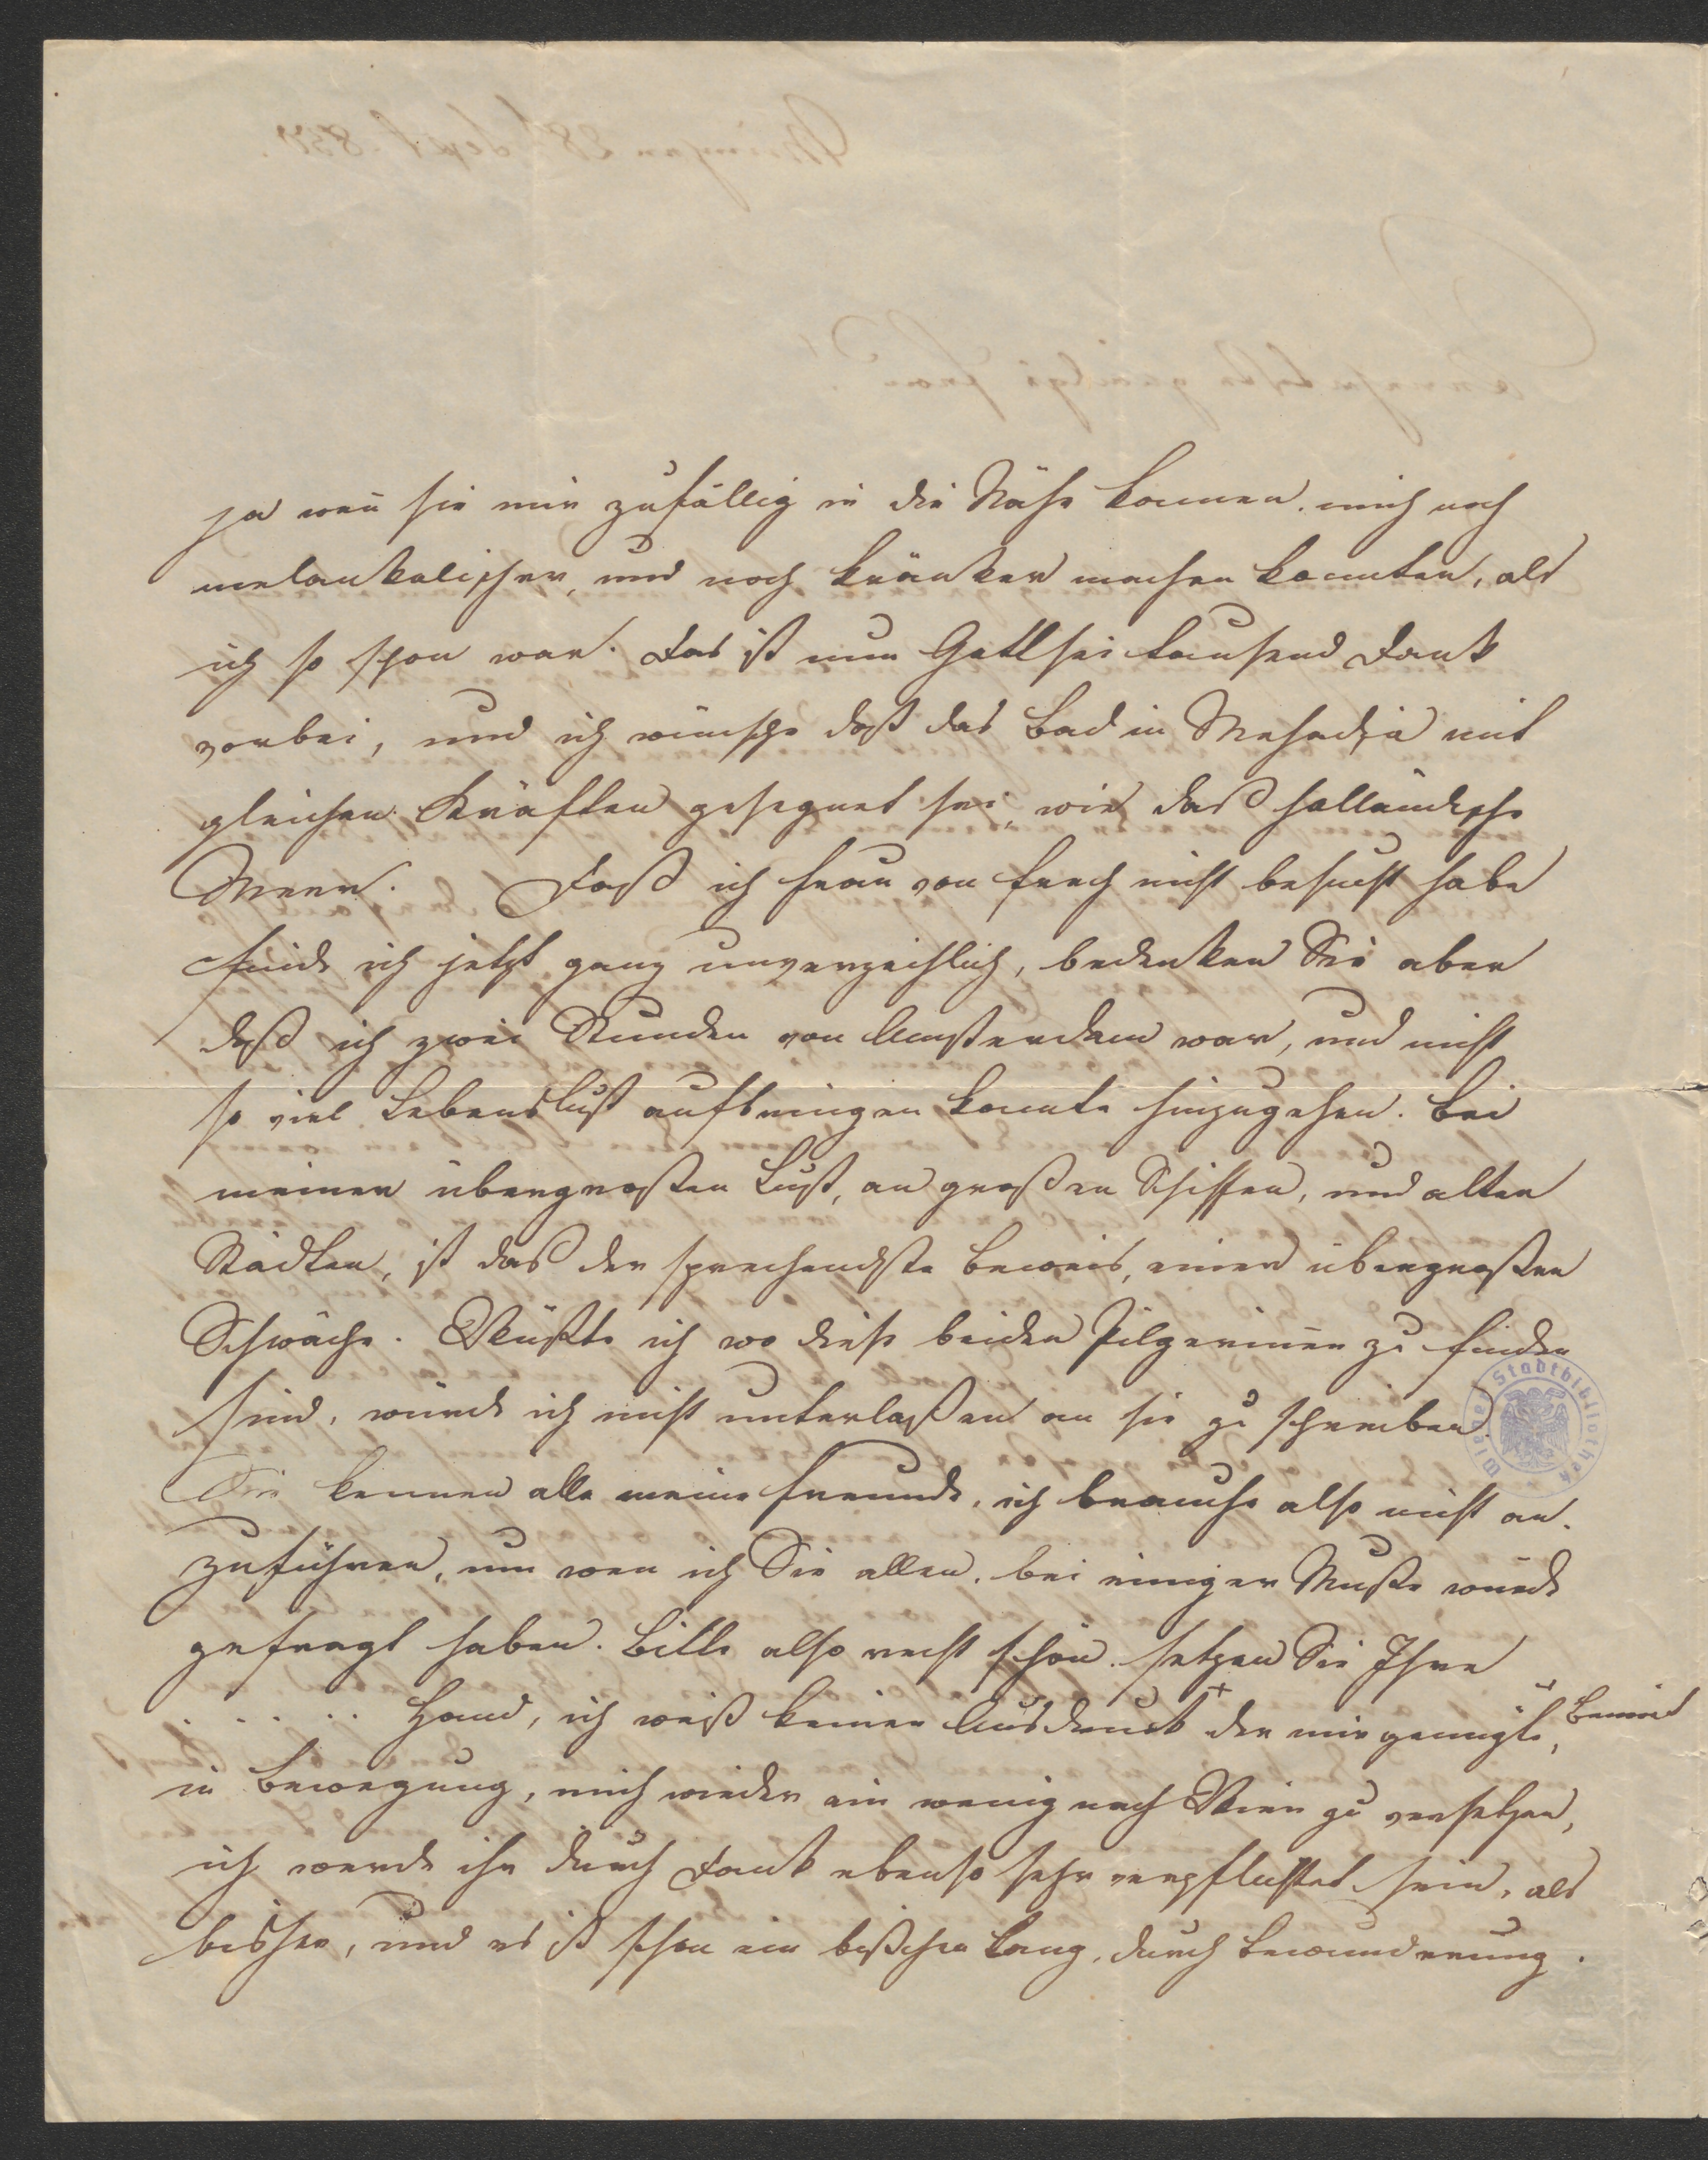 ja wen̄ sie mir zufällig in die Nähe kommen, mich noch
melankolischer, und noch kränker machen konnten, als
ich so schon war. Das ist nun Gottsei tausend Dank
vorbei, und ich wünsche daß das Bad in Mehadia mit
gleichen Kräften gesegnet sei, wie daß holländische
Meer. Daß ich Frau von nicht besucht habe
finde ich jetzt ganz unverzeihlich, bedenken Sie aber
daß ich zwei Stunden von Amsterdam war, und nicht
so viel Lebenslust aufbringen konnte hinzugehen. Bei
meiner übergroßen Lust, an großen Schiffen, und alten
Städten, ist das der sprechendste Beweis, einer übergroßen
Schwäche. Wüßte ich wo diese beiden Pilgerin̄en zu finden
sind, würde ich nicht unterlaßen an sie zu schreiben.
Sie kennen alle meine Freunde, ich brauche also nicht an-
zuführen, um wen ich Sie allen, bei einiger Muße würde
gefragt haben. Bitte also recht schön, setzen Sie Ihre
. . . . . Hand, ich weiß keinen Ausdruck + der mir genügte,
in Bewegung, mich wieder ein wenig nach Wien zu versetzen,
ich werde ihr durch Dank ebenso sehr verpflichtet sein, als
bisher, und es ist schon ein bißchen lang, durch Bewunderung.
Wiener Stadtbibliothek